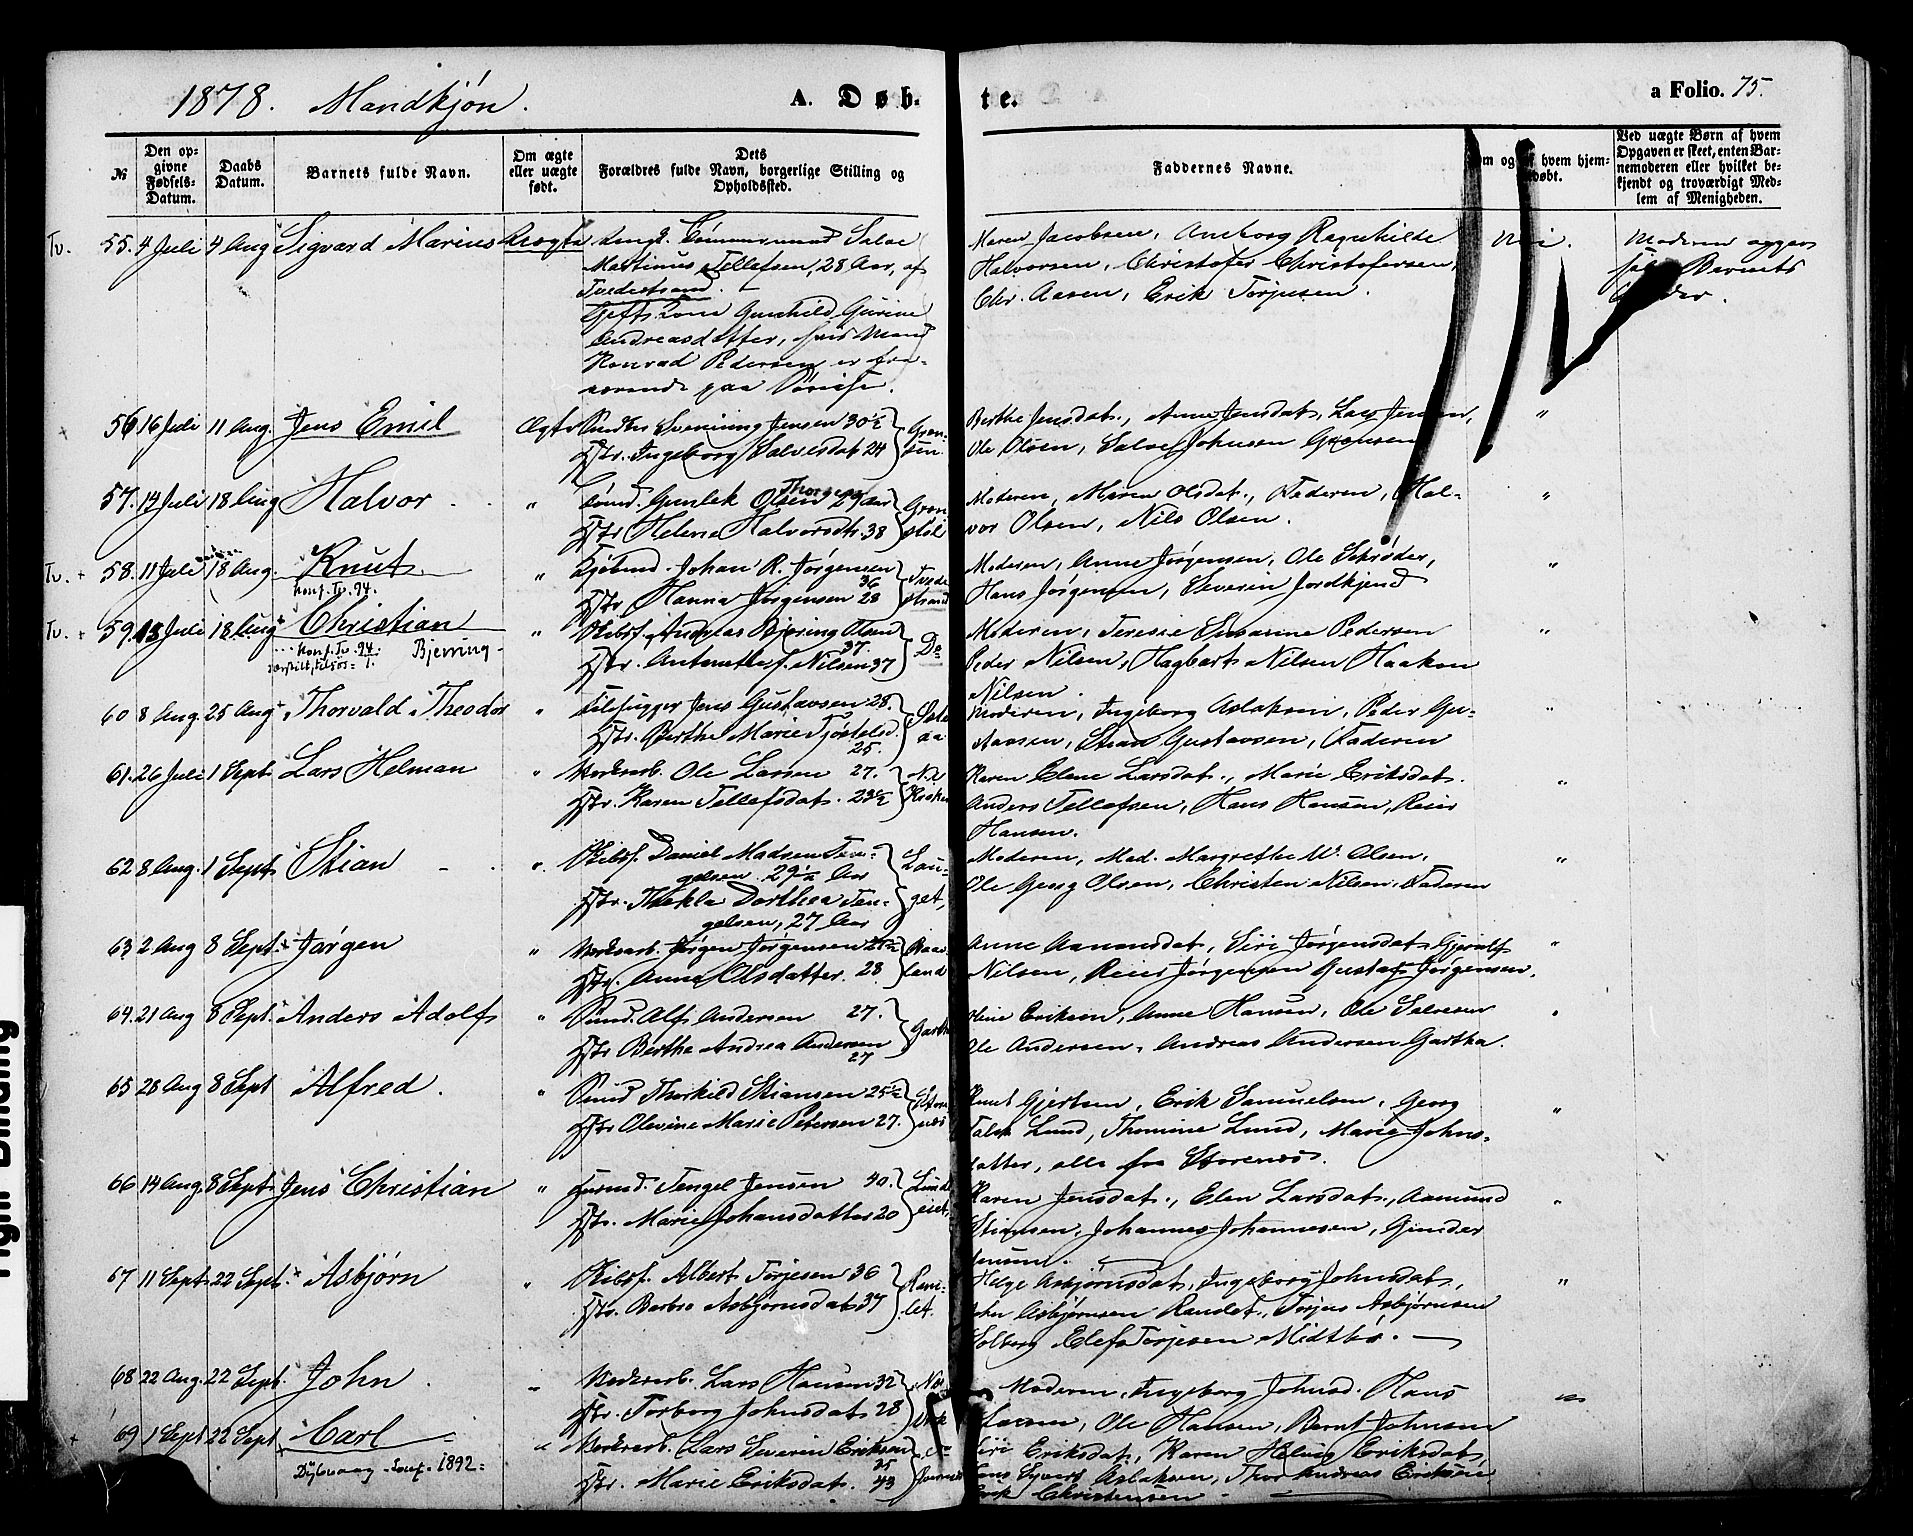 1878. Mandkjøn.
A. Døb-
te.
a Folio. 75.
№
Den op-
givne
Fødsels-
Datum.
Daabs
Datum.
Barnets fulde Navn.
Om ægte
eller uægte
født.
Dets
Forældres fulde Navn, borgerlige Stilling og
Opholdssted.
Faddernes Navne.
og af hvem hjem-
døbt.
Ved uægte Børn af hvem
Opgaven er skeet, enten Bar-
nemoderen eller hvilket be-
kjendt og troværdigt Med-
lem af Menigheden.
Tv. 55. 4 Juli 4 Aug Sigvard Marius Uægte Ungk. Sømand Salve
Martinus Tellefsen, 28 Aar, af
Tvedestrand.
Gift Kone Gunhild Gurine
Andreasdatter, hvis Mand
Konrad Pedersen er fra-
værende paa Søreise.
Maren Jacobsen, Aneborg Ragnhilde
Halvorsen, Christofer Christofersen,
Chr. Aasen, Erik Torjusen.
Nei.
Moderen opgav
Barnets
Fader.
56 16 Juli 11 Aug. Jens Emil Ægte Svenning Jensen 30½
Hstr. Ingeborg Salvesdat. 24
Berthe Jensdat., Anne Jensdat., Lars Jensen,
Ole Olsen, Salve Johnsen Grønsen
"
57. 14 Juli 18 Aug Halvor " Sømd. Gunlek Olsen Thorgers 29 Aar
Hstr Helene Halvorsdtr. 38
Moderen, Maren Olsdat., Faderen, Hal-
vor Olsen, Nils Olsen.
"
Tv. + 58. 11 Juli 18 Aug. Knut
Konf. Tv. 94.
" Kjøbmd. Johan R. Jørgensen
36
Hstr Hanna Jørgensen 28
Tvede
strand
Moderen, Anne Jørgensen, Ole Schrøder,
Hans Jørgensen, Severin Jordkjend
"
Tv. + 59. 13 Juli 18 Aug Christian
Konf. Tv. 94. Bjerring
" Skibsf. Andreas Bjering Olsen
37.
Hstr. Antonette f. Nilsen 37
Do
Moderen, Teresie Susanne Pedersen
Peder Nilsen, Hagbart Nilsen Haakon
Nilsen.
"
60 8 Aug. 25 Aug Thorvald Theodor " Filhugger Jens Gustavsen 28.
Hstr. Berthe Marie Tjøstelsd.
25.
Moderen, Ingeborg Aslaksen, Peder Gu-
stavsen, Stian Gustavsen, Faderen
"
61. 26 Juli 1 Sept. Lars Helman " Verksarb. Ole Larsen 27.
Hstr. Karen Tellefsdat. 23½
Karen Elene Larsdat., Marie Eriksdat.
Anders Tellefsen, Hans Hansen, Reier
Hansen.
"
62 8 Aug. 1 Sept. Stian ". Skibsf. Daniel Madsen Ten-
gelsen 29½ Aar
Hstr. Thekla Dorthea Ten-
gelsen, 27 Aar
Lau-
get,
Moderen, Mad. Margrethe W. Olsen,
Ole Georg Olsen, Christen Nilsen, Faderen
"
63 2 Aug 8 Sept. Jørgen " Verksarb. Jørgen Jørgensen
Hstr. Anna Olsdatter. 28
Anne Aanonsdat, Siri Jørgensdat, Gjerulf
Nilsen, Reier Jørgensen Gustaf Jørgensen.
"
64. 21 Aug 8 Sept. Anders Adolf " Sømd. Alf Andersen 27.
Hstr Berthe Andrea Andersen
27
Gartha
Oline Eriksen, Anne Hansen, Ole Salvesen
Ole Andersen, Andreas Andersen Gartha.
"
65 26 Aug 8 Sept Alfred. " Sømd Thorkild Stiansen 25½
Hstr Olevine Marie Petersen 27.
Knut Gjertsen, Erik Samuelsen, Georg
Falch Lund, Thomine Lund, Marie Johns-
datter, alle fra Storenæs.
"
66 14 Aug. 8 Sept. Jens Christian " Tengel Jensen 40.
Hstr. Marie Johansdatter 20
Lund
eiet,
Karen Jensdat., Elen Larsdat., Aamund
Stiansen, Johannes Johannesen, Gunder
"
67 11 Sept. 22 Sept. Asbjørn " Skibsf. Albert Torjesen 36
Hstr. Barbro Asbjørnsdat. 37
Ram-
let.
Helge Asbjørnsdat., Ingeborg Johnsdat.,
John Asbjørnsen Ramlet, Torjus Asbjørnsen
Solberg Elef Torjesen Midtbø.
"
68 22 Aug. 22 Sept. John. " Verksarb. Lars Hansen 32
Hstr. Torborg Johnsdat. 28
Moderen, Ingeborg Johnsd. Hans
Larsen, Ole Hansen, Bernt Johnsen
"
+ 69 1 Sept 22 Sept Carl
Dybvaag Konf. 1892
" Verksarb. Lars Severin Eriksen
35
Hstr. Marie Eriksdat. 43
Siri Eriksdat, Karen Helvig Eriksdat,
Jens Syvert Aslaksen, Thor Andreas Eriksen
Erik Christensen